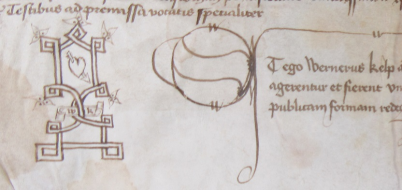 Testibus ad premissa vocatis specialiter
Et ego Wernerus kelp
agerentur et fierent
publicam formam